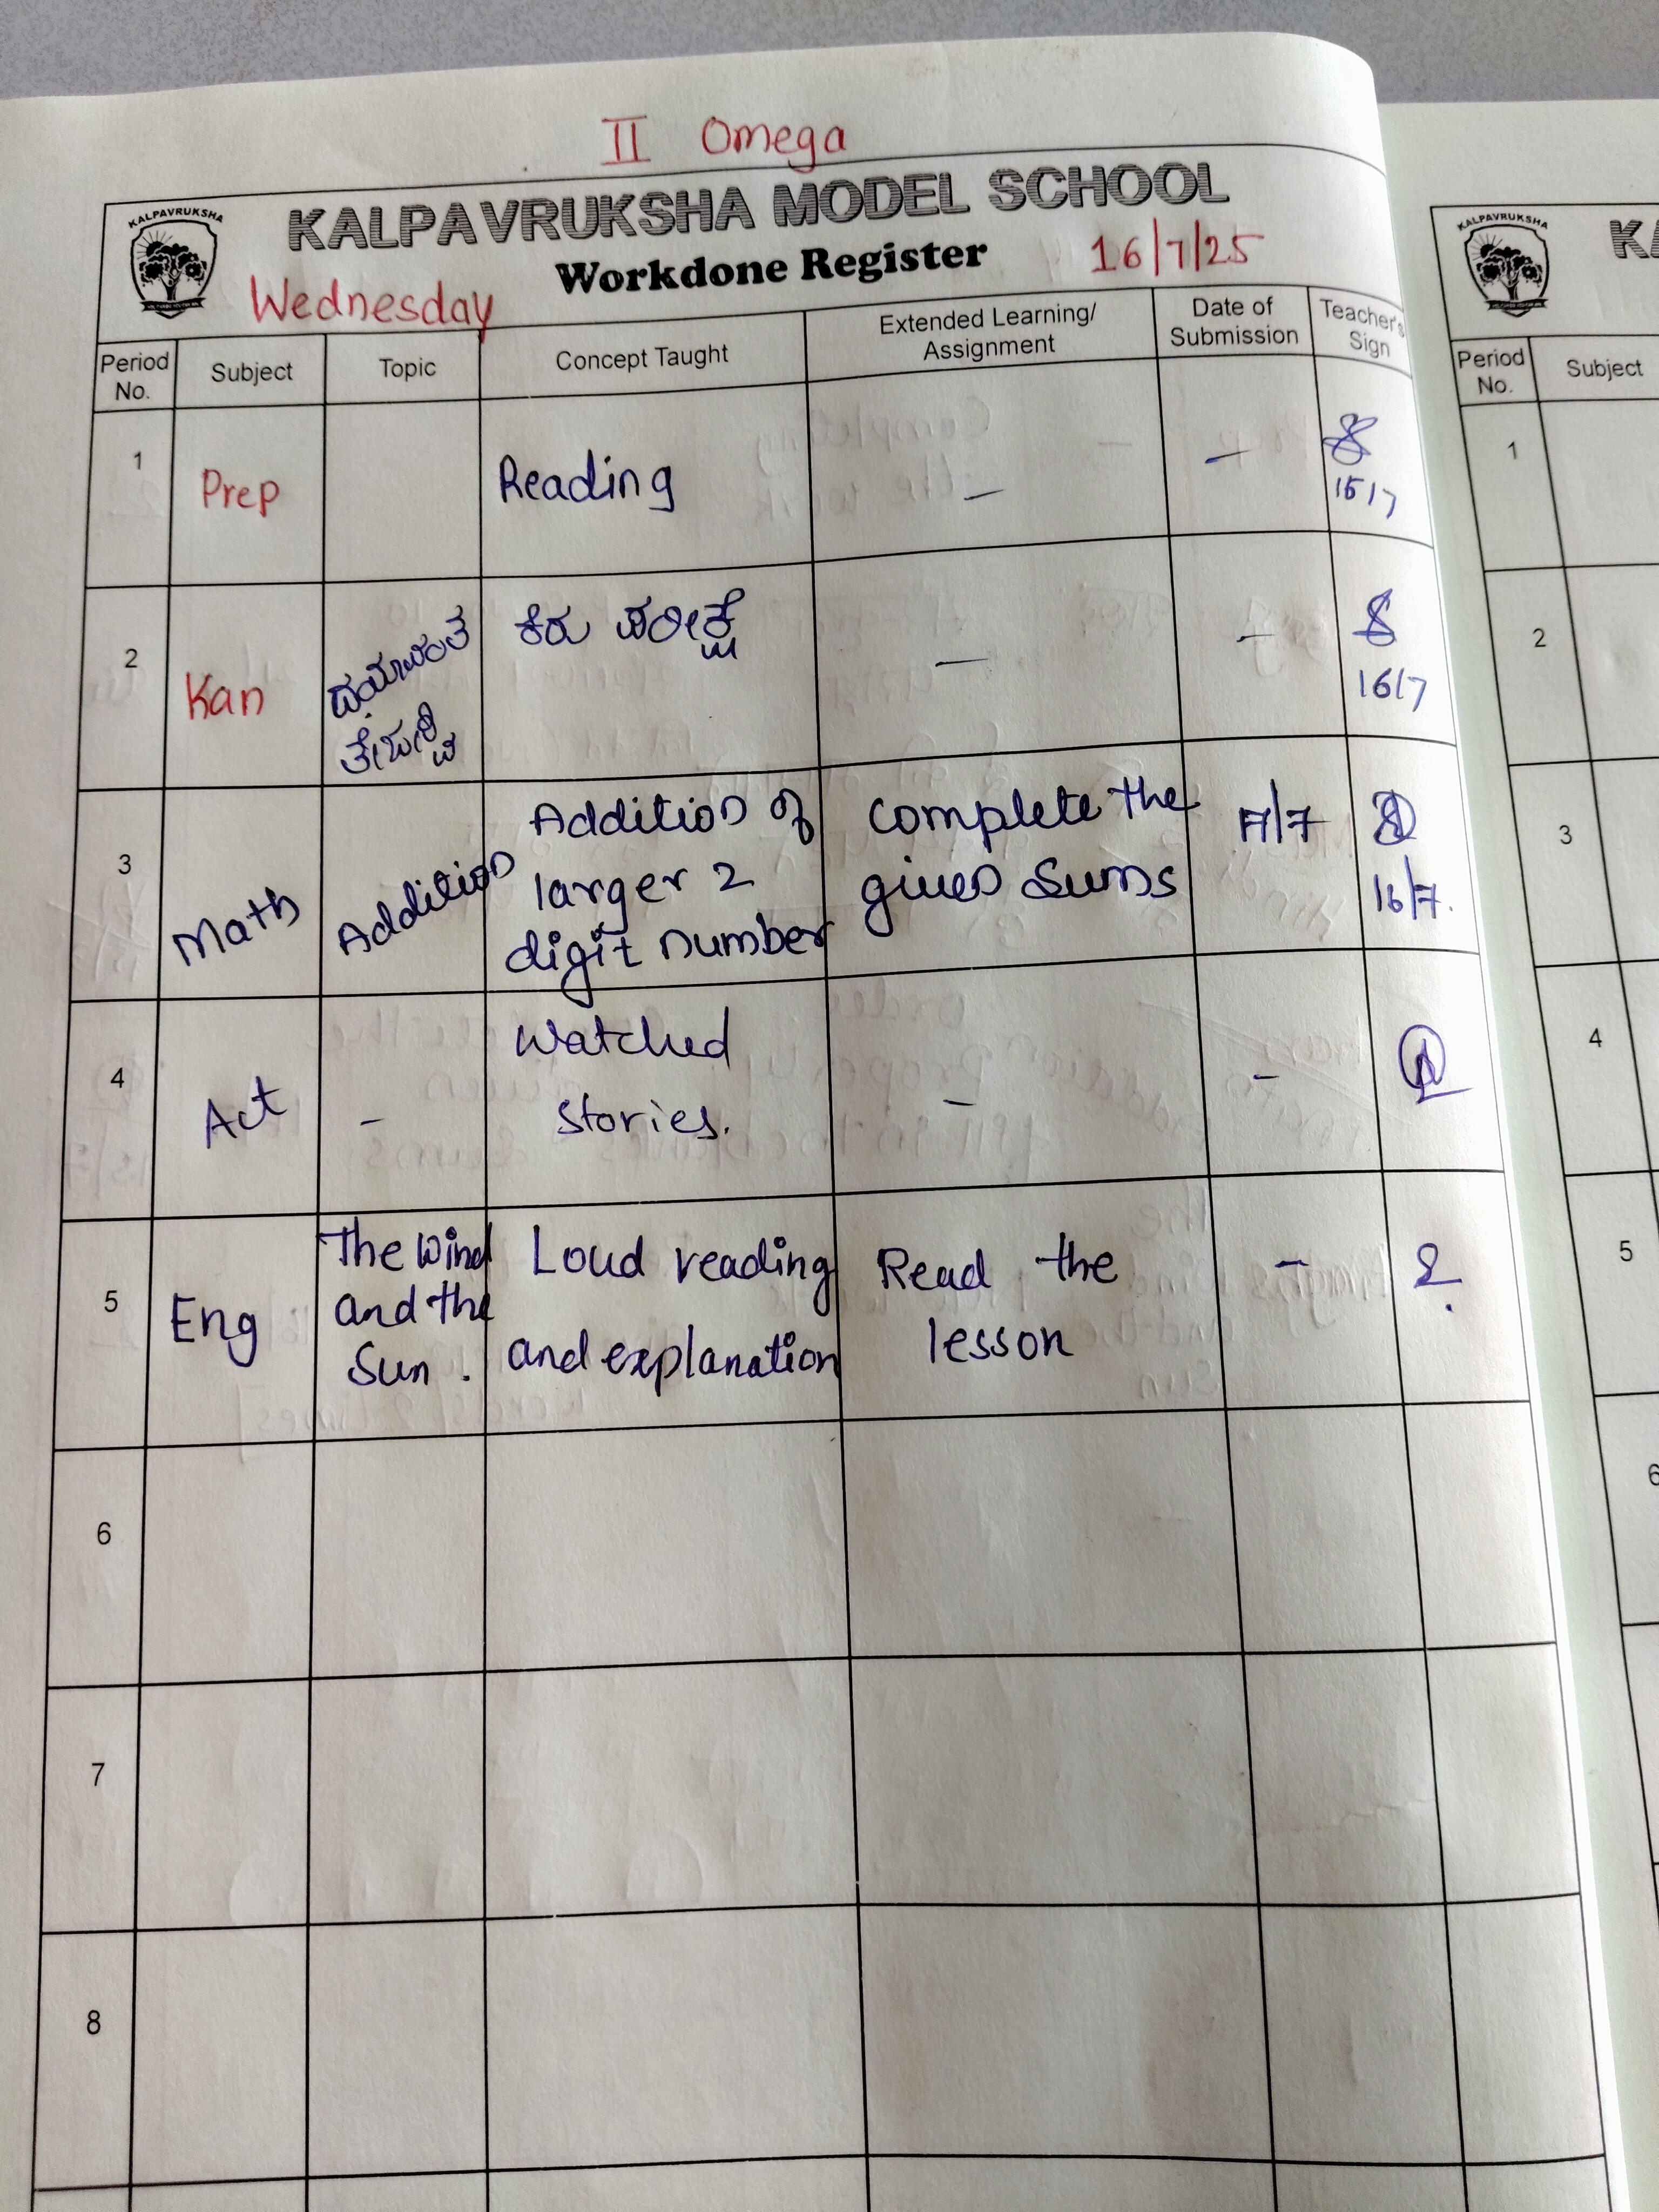 II Omega
KALPAVRUKSHA
KALPAVRUKSHA MODEL SCHOOL
Workdone Register
Wednesday
16/7/25
Period No.
Subject
Topic
Concept Taught
Extended Learning/ Assignment
Date of Submission
Teacher's Sign
1
Prep
Reading
-
-
2
Kan
ಕಿರು ಪರೀಕ್ಷೆ
-
-
16/7
3
Math
Addition
Addition of
larger 2
digit number
complete the
given sums
17/7
16/7.
4
Act
-
Watched
stories.
-
-
5
Eng
The Wind
and the
Sun.
Loud reading
and explanation
Read the
lesson
-
6
7
8
KALPAVRUKSHA
Period No.
Subject
1
2
3
4
5
6